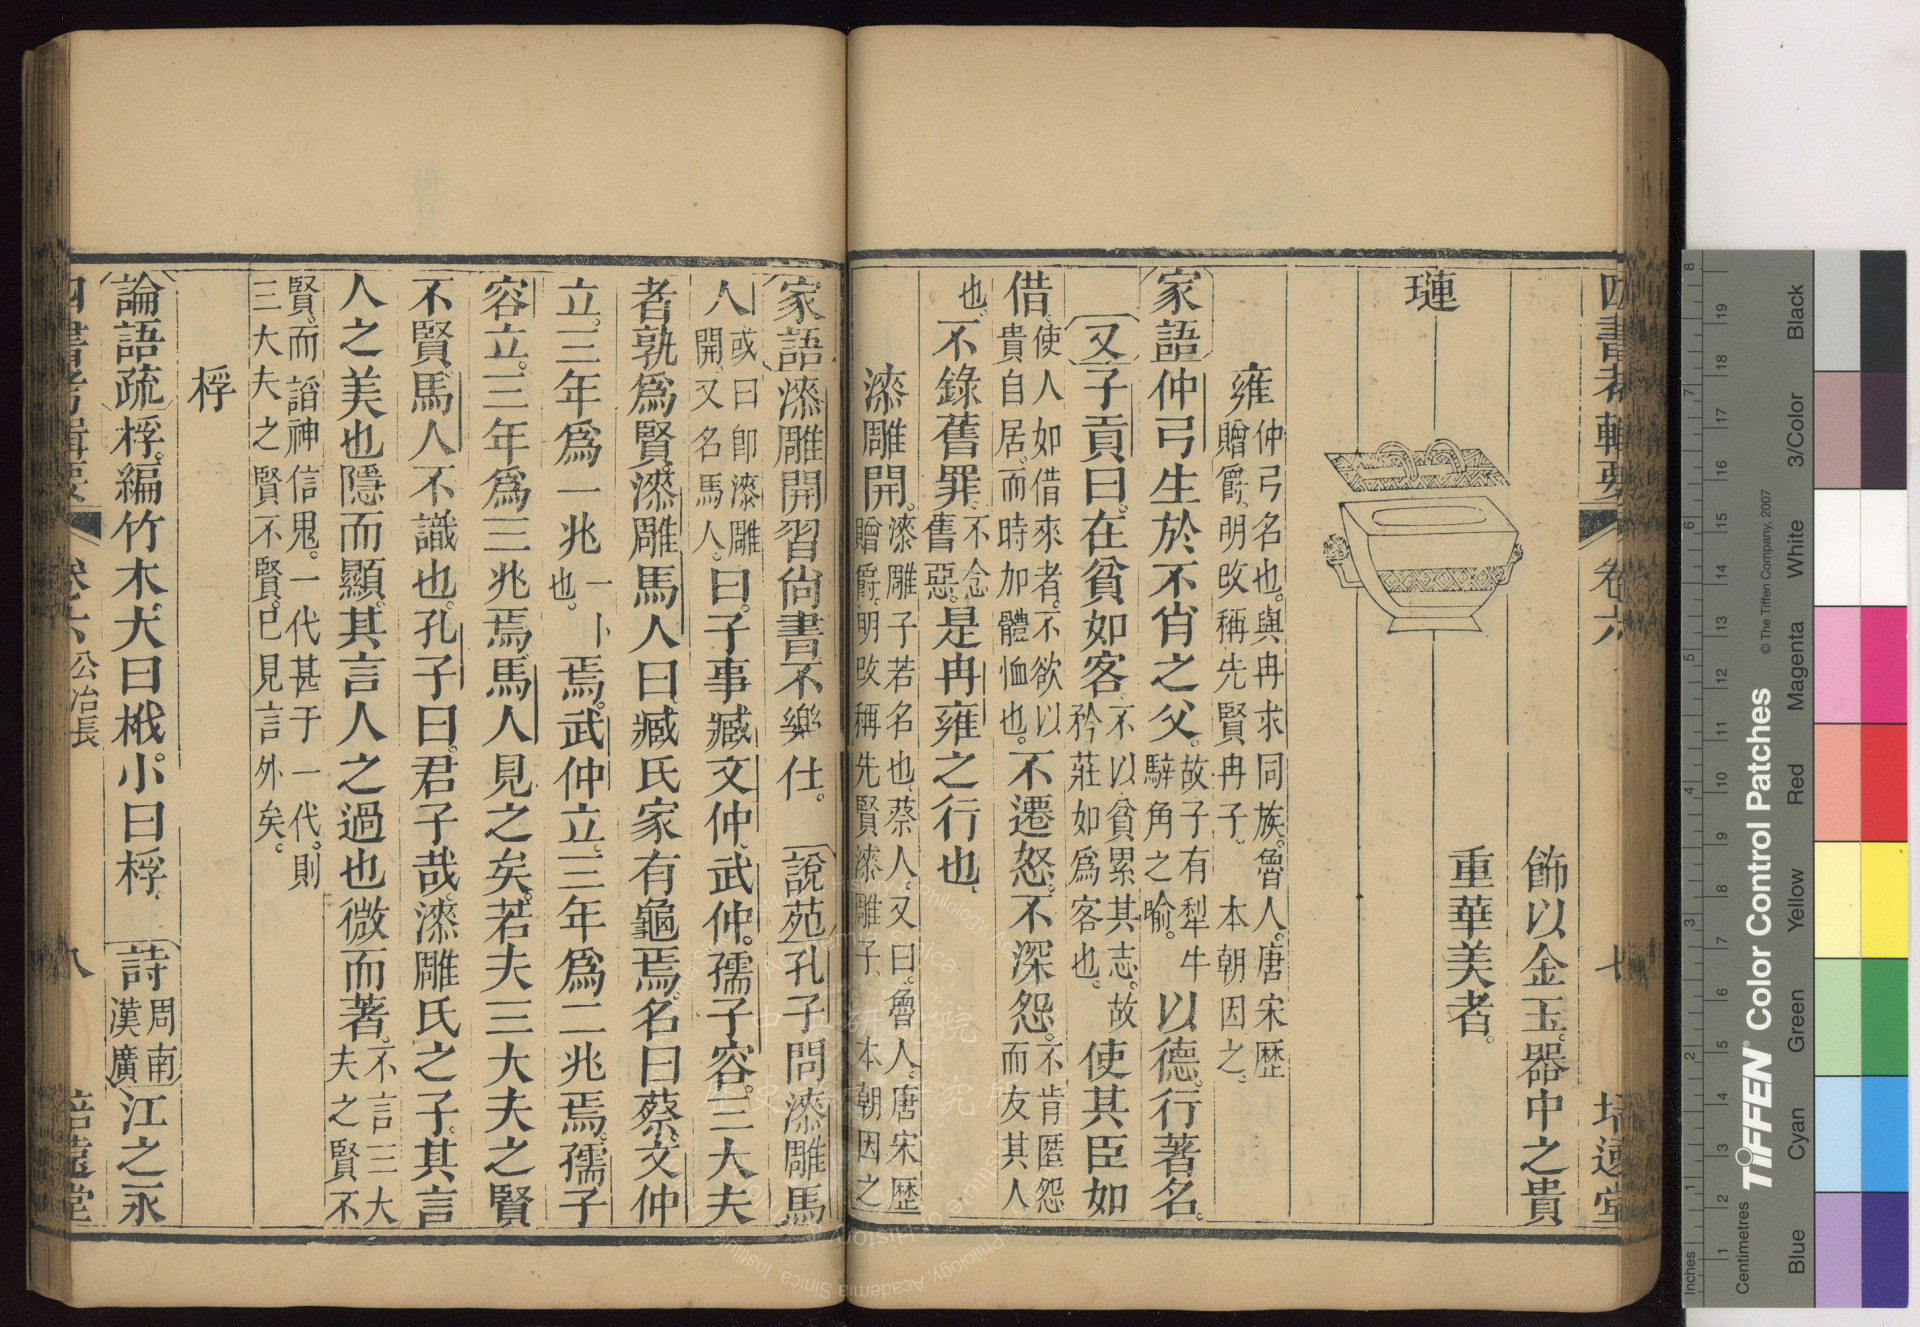 四書考輯要 卷六 七 培遠堂
飾以金玉器中之貴
重華美者。
璉
雍仲弓名也。與冉求同族。魯人。唐宋歷
贈爵。明改稱先賢冉子。本朝因之。
家語仲弓生於不肖之父。故子有犁牛
騂角之喻。以德行著名。
又子貢曰。在貧如客。不以貧累其志。故
矜莊如為客也。使其臣如
借。使人如借來者。不欲以
貴自居。而時加體恤也。不遷怒。不深怨。不肯匿怨
而友其人
也。不錄舊罪。不念
舊惡。是冉雍之行也。
漆雕開。漆雕子若名也。蔡人。又曰。魯人。唐宋歷
贈爵。明改稱先賢漆雕子。本朝因之
家語漆雕開習尚書不樂仕。說苑孔子問漆雕馬
人或曰卽漆雕
開。又名馬人。曰。子事臧文仲。武仲。孺子容。三大夫
者孰爲賢。漆雕馬人曰。臧氏家有龜焉。名曰蔡。文仲
立。三年爲一兆一卜
也。焉。武仲立。三年爲二兆焉。孺子
容立。三年爲三兆焉。馬人見之矣。若夫三大夫之賢
不賢。馬人不識也。孔子曰。君子哉。漆雕氏之子。其言
人之美也隱而顯。其言人之過也微而著。不言三大
夫之賢不
賢。而諂神信鬼。一代甚于一代。則
三大夫之賢不賢。已見言外矣。
桴
論語疏桴。編竹木。大曰栰。小曰桴。詩周南
漢廣江之永
四書考輯要 卷六 公冶長 八 培遠堂
中央研究院
歷史語言研究所
Institute of History & Philology, Academia Sinica
Inches
Centimetres
TIFFEN Color Control Patches
© The Tiffen Company, 2007
Blue
Cyan
Green
Yellow
Red
Magenta
White
3/Color
Black